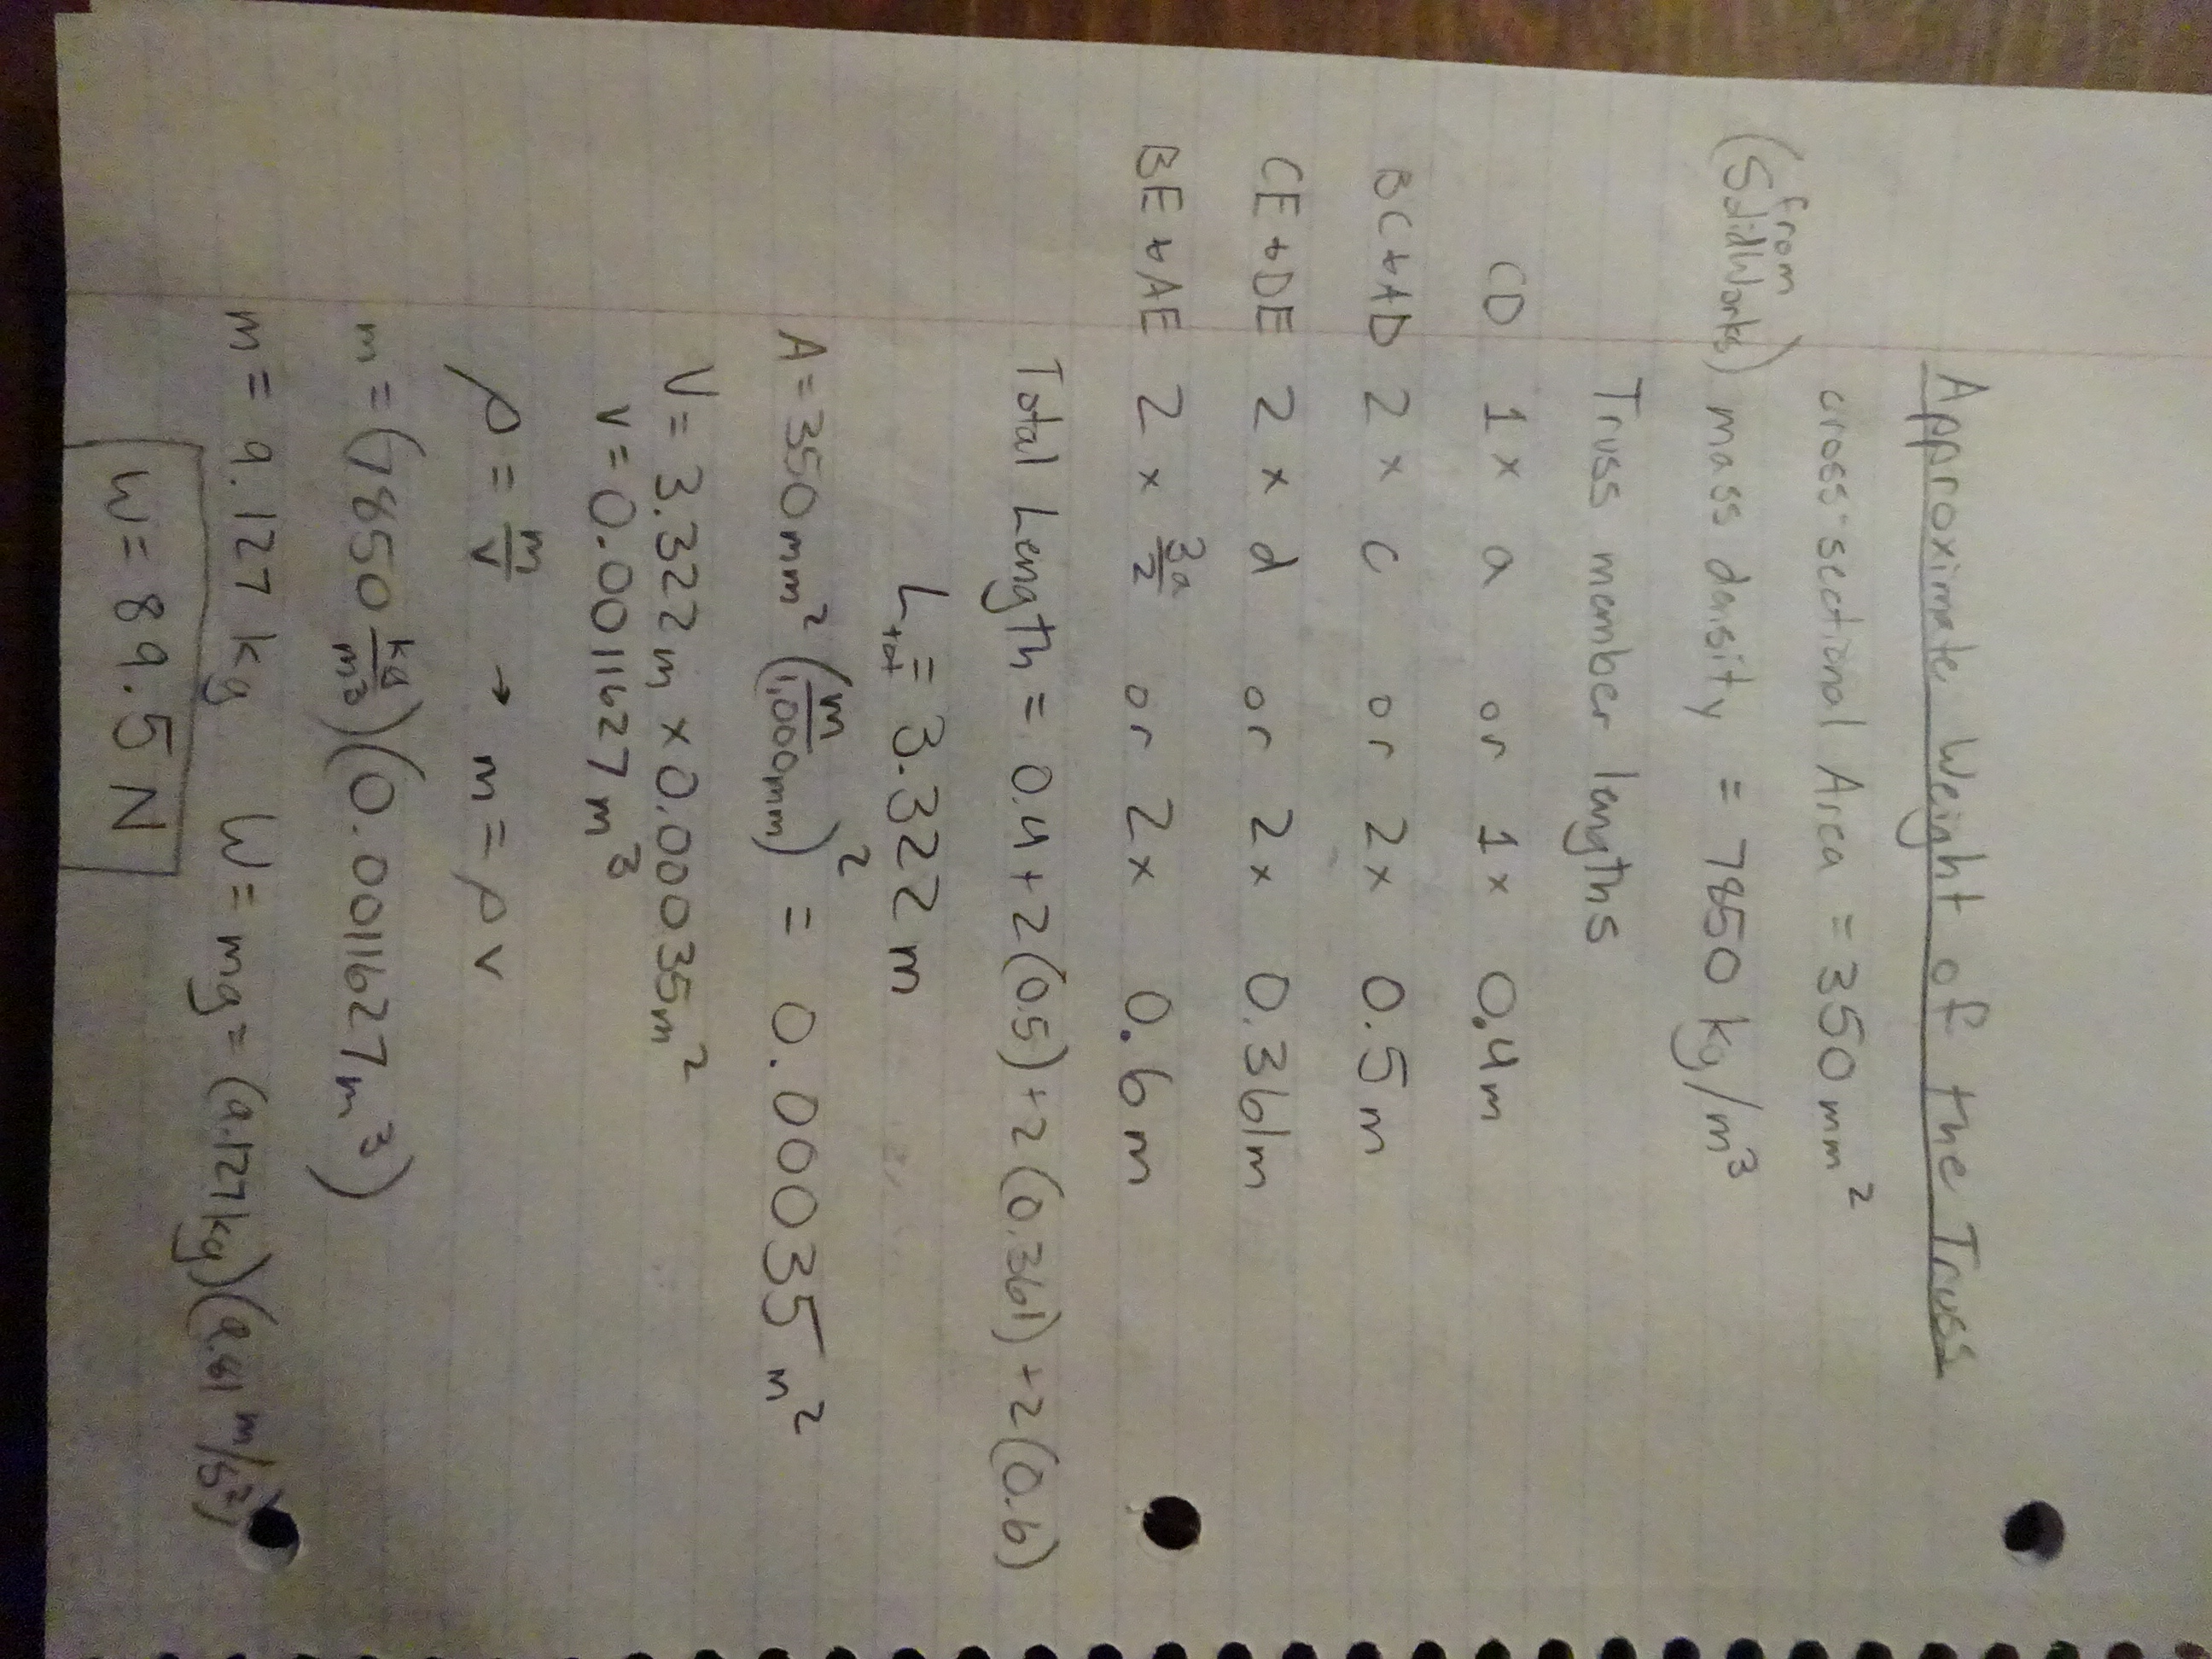 Approximate Weight of the Truss
cross-sectional Area = 350 mm²
(from SolidWorks) mass density = 7850 kg/m³
Truss member lengths
CD 1 x a or 1 x 0.4 m
BC & AD 2 x c or 2 x 0.5 m
CE & DE 2 x d or 2 x 0.361 m
BE & AE 2 x 3a/2 or 2 x 0.6 m
Total Length = 0.4 + 2(0.5) + 2(0.361) + 2(0.6)
Ltot = 3.322 m
A = 350 mm² (m/1,000 mm)² = 0.00035 m²
V = 3.322 m x 0.00035 m²
V = 0.0011627 m³
ρ = m/V → m = ρV
m = (7850 kg/m³)(0.0011627 m³)
m = 9.127 kg W = mg = (9.127 kg)(9.81 m/s²)
W = 89.5 N